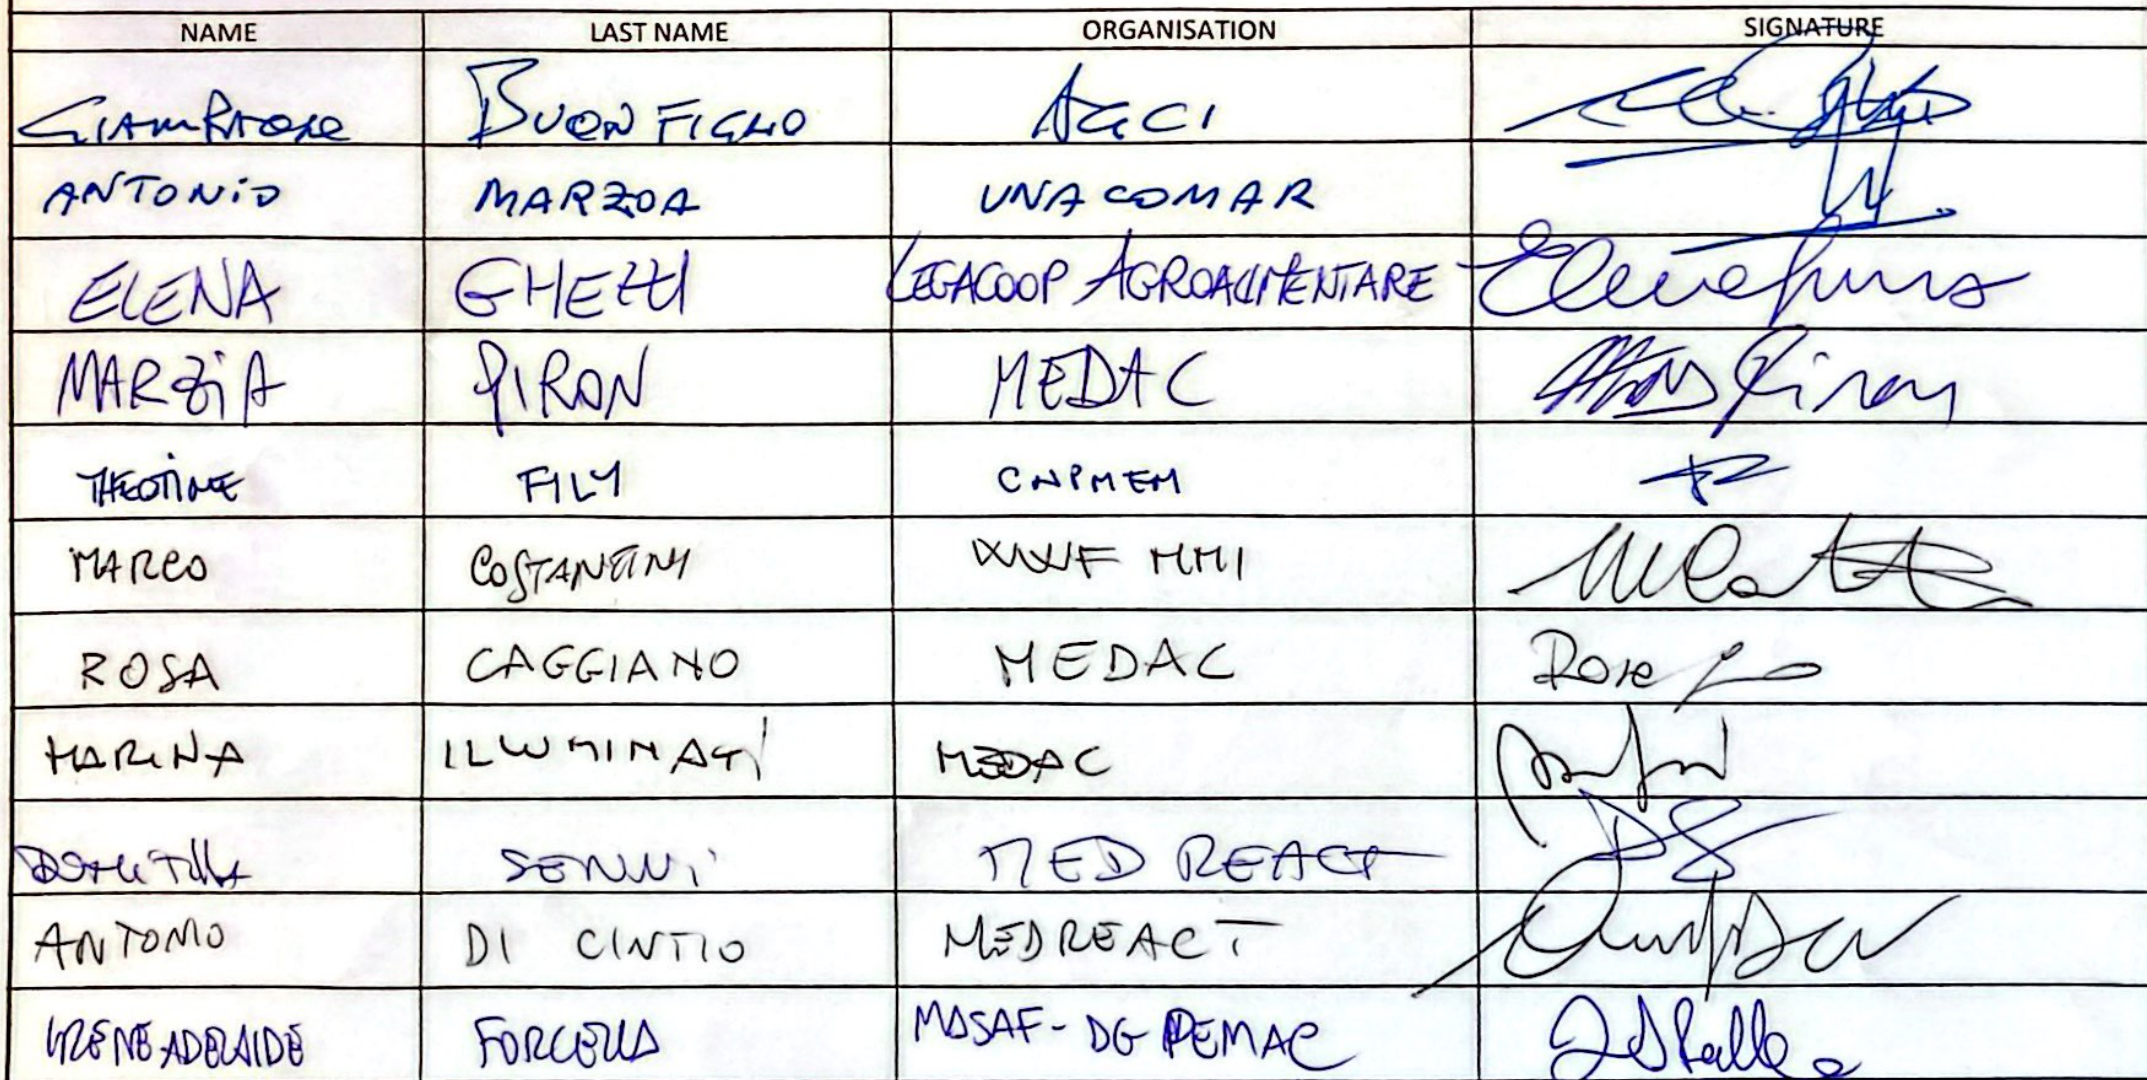 NAME LAST NAME ORGANISATION SIGNATURE
GIAMPAOLO BUONFIGLIO AGCI
ANTONIO MARZOA UNACOMAR
ELENA GHEZZI LEGACOOP AGROALIMENTARE
MARZIA PIRON MEDAC Piron
THEOTIME FILY CNPMEM
MARCO COSTANTINI WWF MMI
ROSA CAGGIANO MEDAC Rosa
MARINA ILLUMINATI MEDAC
DOMITILLA SENNI MEDREACT DS
ANTONIO DI CINTIO MEDREACT
IRENE ADELAIDE FORCELLA MASAF-DG PEMAC